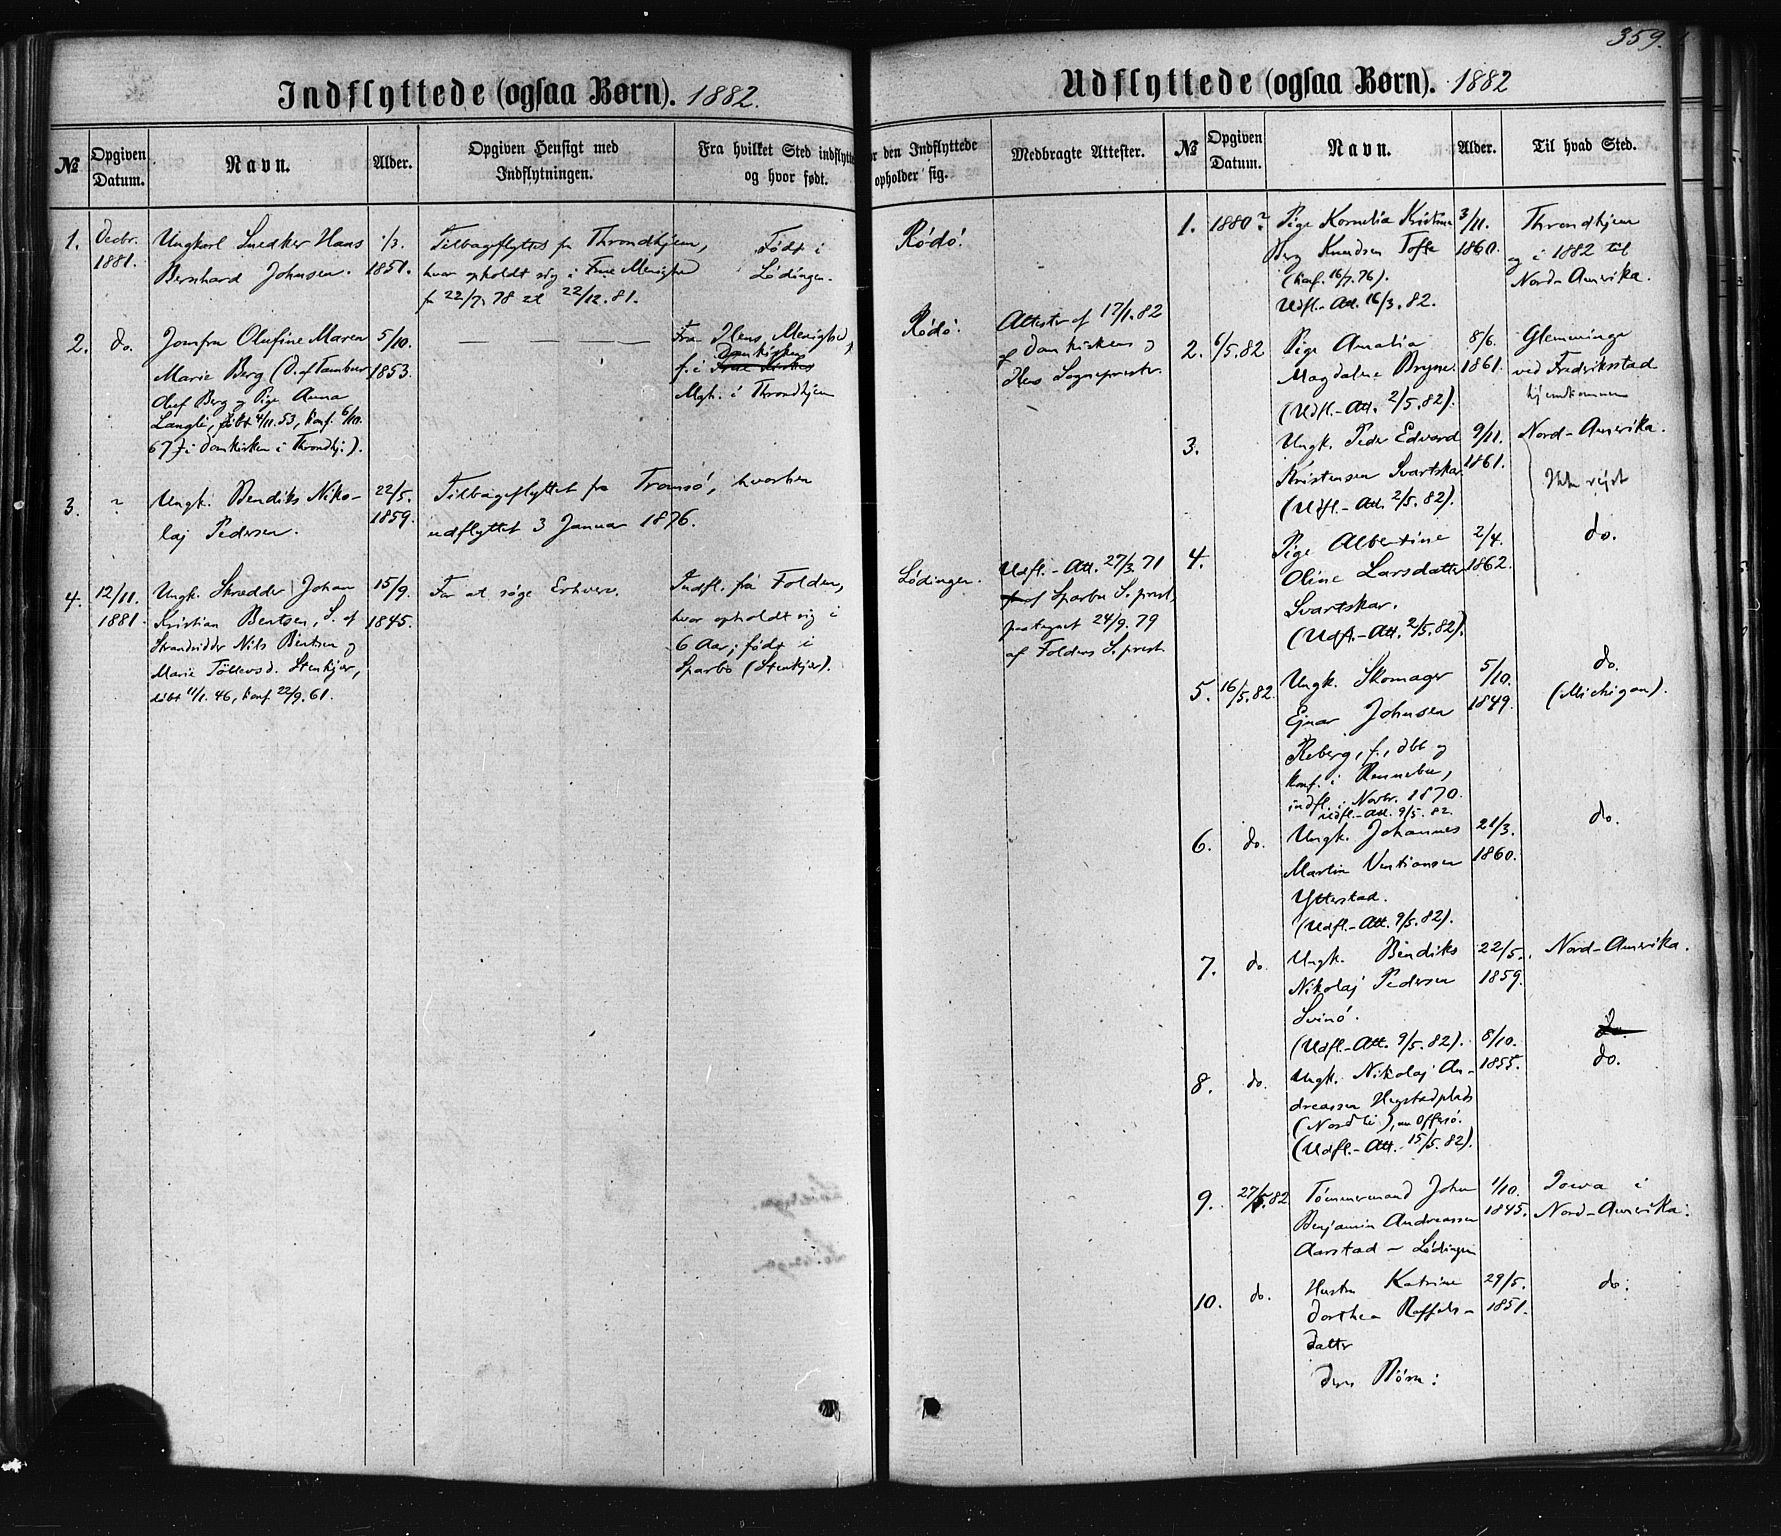 359.
Indflyttede (ogsaa Børn). 1882.
№
Opgiven Datum.
Navn.
Alder.
Opgiven Hensigt med Indflytningen.
Fra hvilket Sted indflytte
og hvor født.
or den Indflyttede
opholder sig.
Medbragte Attester.
1.
Decbr. 1881.
Ungkarl Snedker Hans
Bernhard Johnsen.
1/3.
1851.
Tilbageflyttet fr Throndhjem,
hvor opholdt sig i Frue Menighed
fr 22/7.78 til 22/12.81.
Født i
Lødingen.
Rødø.
2.
do.
Jomfru Olufine Maren
Marie Berg (D. af Tambur
Oluf Berg og Pige Anna
Langli, døbt 4/11.53, konf. 6/10.
67 i Domkirken i Throndhj.).
5/10.
1853.
Fra Ilens Menighed,
Domkirkens
f. i Frue Kirkes
Mgh. i Throndhjem
Rødø.
Attester af 17/1.82
af Domkirkens og
Ilens Sogneprester.
3.
?
Ungk. Bendiks Niko-
laj Pedersen.
22/5.
1859.
Tilbageflyttet fra Tromsø, hvorhen
udflyttet 3 Januar 1876.
4.
12/11.
1881.
Ungk. Skrædder Johan
Kristian Bentsen, S. af
Strandsidder Nils Bentsen og
Marie Tollevsd. Stenkjer,
døbt 11/1.46, konf. 22/9.61.
15/9.
1845.
For at søge Erhverv.
Indfl. fra Folden,
hvor opholdt sig i
6 Aar; født i
Sparbo (Stenkjer).
Lødingen.
Udfl.-Att. 27/3.71
af Sparbu S.prest,
paategnet 24/9.79
af Foldens S.prest
Udflyttede (ogsaa Børn). 1882
№
Opgiven Datum.
Navn.
Alder.
Til hvad Sted.
1.
1880?
Pige Kornelia Kristine
Berg Knudsen Tofte
(konf. 16/7.76).
Udfl.-Att. 16/3.82.
3/11.
1860.
Throndhjem
og i 1882 til
Nord-Amerika.
2.
6/5.82
Pige Amalia
Magdalene Bryne.
(Udfl.-Att. 2/5.82).
8/6.
1861.
Glemminge
ved Fredriksstad
hjemkommen
3.
Ungk. Peder Edvard
Kristensen Svartskar
(Udfl.-Att. 2/5.82).
9/11.
1861.
Nord-Amerika.
Ikke rejst
4.
Pige Albertine
Oline Larsdatter
Svartskar.
(Udfl.-Att. 2/5.82).
2/4.
1862.
do.
5.
16/5.82.
Ungk. Skomager
Ejnar Johnsen
Reberg, f., dbt og
konf. i Rennebu,
indfl. i Novbr. 1870.
Udfl.-Att. 9/5.82.
5/10.
1849.
do.
(Michigan).
6.
do.
Ungk. Johannes
Martin Ventiansen
Ytterstad.
(Udfl.-Att. 9/5.82).
21/3.
1860.
do.
7.
do.
Ungk. Bendiks
Nikolaj Pedersen
Svinø.
(Udfl.-Att. 9/5.82).
22/5.
1859.
Nord-Amerika.
do.
8.
do.
Ungk. Nikolaj An-
dreassen Hegstadplads
(Nordli), nu Offersø.
(Udfl.-Att. 15/5.82).
8/10.
1855.
do.
9.
27/5.82
Tømmermand John
Benjamin Andreassen
Aarstad - Lødingen
1/10.
1845.
Iowa i
Nord-Amerika.
10.
do.
Hustru Katrine
Dorthea Roffels-
datter
29/5.
1851.
do.
Deres Børn: